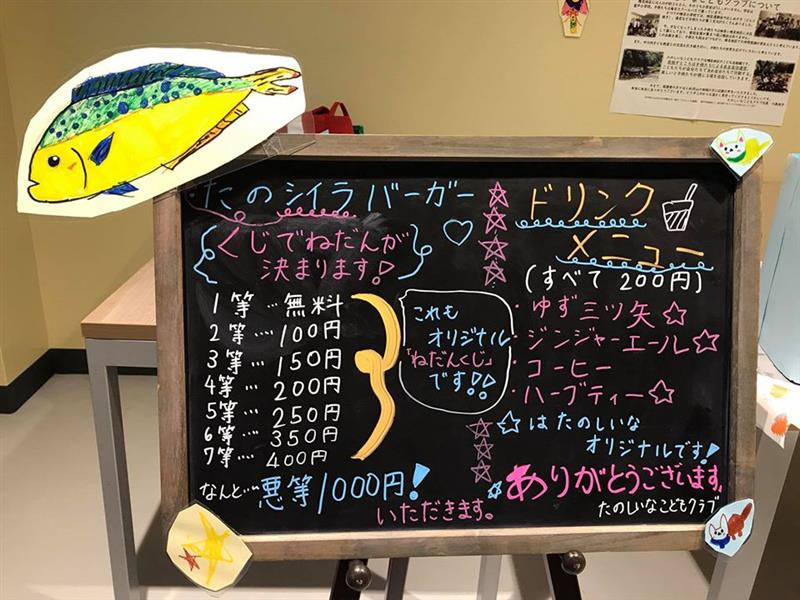 たのシイラバーガー
くじでねだんが
決まります!
1等…無料
2等…100円
3等…150円
4等…200円
5等…250円
6等…350円
7等…400円
なんと…悪等1000円!
いただきます。
これも
オリジナル
「ねだんくじ」
です!!
ドリンク
メニュー
(すべて200円)
・ゆず三ツ矢☆
・ジンジャーエール☆
・コーヒー
・ハーブティー☆
☆はたのしいな
オリジナルです!
ありがとうございます。
たのしいなこどもクラブ
こどもクラブについて